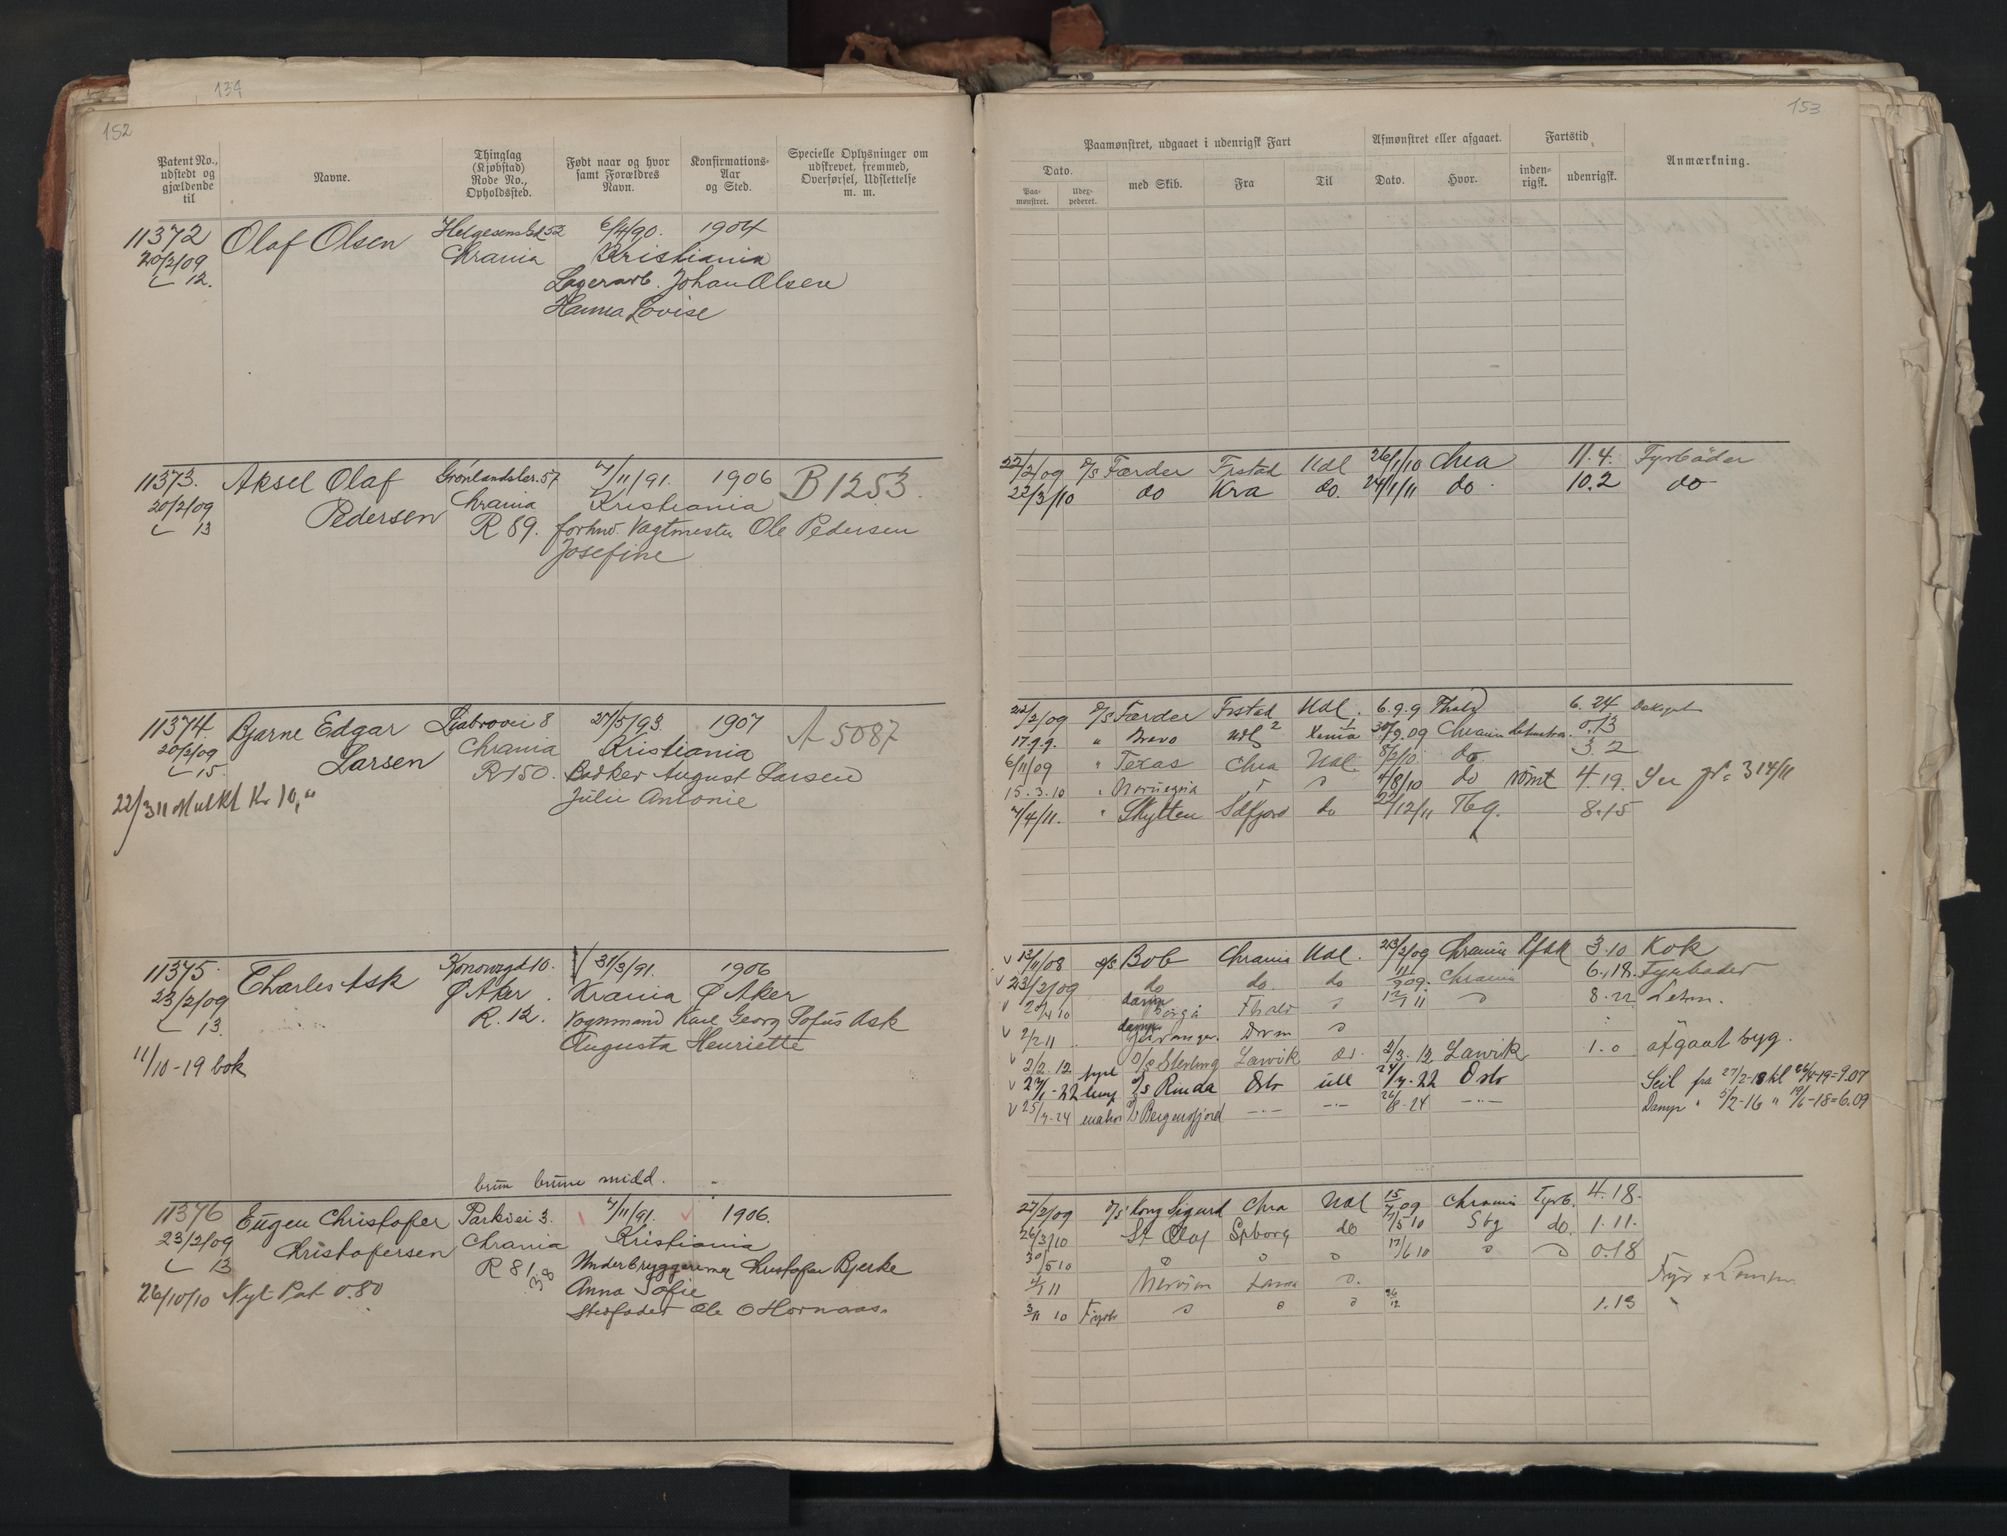 134
152
Patent No., udstedt og gjældende til
Navne.
Thinglag (Kjøbstad) Rode No., Opholdssted.
Født naar og hvor samt Forældres Navn.
Konfirmations- Aar og Sted.
Specielle Oplysninger om udskrevet, fremmed, Overførsel, Udslettelse m. m.
11372 Olaf Olsen Helgesensgd 52 6/4 90. 1904
20/2/09 Chrania Kristiania
12. Lagerarb. Johan Olsen
Hanna Lovise
11373. Aksel Olaf Grønlandsler. 57 7/11/91. 1906 B 1253.
20/2/09 Pedersen Chrania Kristiania
13 R 89. forhv. Vagtmester Ole Pedersen
Josefine
11374. Bjarne Edgar Ljabrovei 8 27/5/93 1907 A 5087
20/2/09 Larsen Chrania Kristiania
15. R 150. August Larsen
22/3 11 Mulkt Kr 10,"
Julie Antonie
11375. Charles Ask Konowsgd 10. 31/3/91. 1906
23/2/09 Ø Aker. Krania Ø Aker
13. R. 12. Vognmand Karl Georg Sofus Ask
Augusta Henriette
11/10-19 bok
brun brune midd.
11376 Eugen Christofer Parkvei 3. 7/11/91. 1906.
23/2/09 Christofersen Chrania Kristiania
13 R 81 38 Christofer Bjerke
Anna Sofie
26/10/10 Nyt Pat 0.80
Stedfader Ole O Hornaas.
153
Paamønstret, udgaaet i udenrigsk Fart
Afmønstret eller afgaaet.
Fartstid
Anmærkning.
Dato.
Paa- mønstret.
Udex- pederet.
med Skib.
Fra
Til
Dato.
Hvor.
inden- rigsk.
udenrigsk.
22/2/09 D/S Færder Frstad Udl 26/1/10 Chra 11.4. Fyrbøder
22/3/10 do Kra do. 24/1/11 do. 10.2 do
22/2/09 D/S Færder Frstad Udl. 6.9.9 6.24
17.9.9. " Bravo Udl 30/9.09 Chrania 0.13
6/11/09 " Texas Chra Udl 8/2/10 do. 3.2
15.3.10 " Noruega 4/8/10 do rømt 4.19. Se 314/11
7/4/11. " Skytten do 22/12/11 8.15
v 13/11/08 S/S Bob Chrania Udl. 23/2/09 Chrania 3.10 Kok
v 23/2/09 do do. do 11/9 09. Chrania 6.18. Fyrbøder
v 20/4 10 damp 12/1 11 8.22 Letm.
v 2/2 11 damp Drm
v 2/2.12 D/S Sterling Larvik do. 2/3.12 Larvik 1.0 afgaat syg.
v 27/1-22 D/S Rinda Oslo utl 24/7.22 Oslo Seil fra 27/2-18 til 26/4-19=9.07
v 25/7-24 D/S Bergensfjord -"- -"- 26/8-24 -"- Damp " 5/2-16 " 19/6-18=6.09
27/2/09 D/S Kong Sigurd Chra Udl 15/7 09 Chrania Fyrb. 4.18.
26/3/10 St Olaf Spborg do 7/5 10 Sbg do. 1.11.
30/5 10 17/6 10 0.18
3/11 10 Fyrb 26/12 1.13